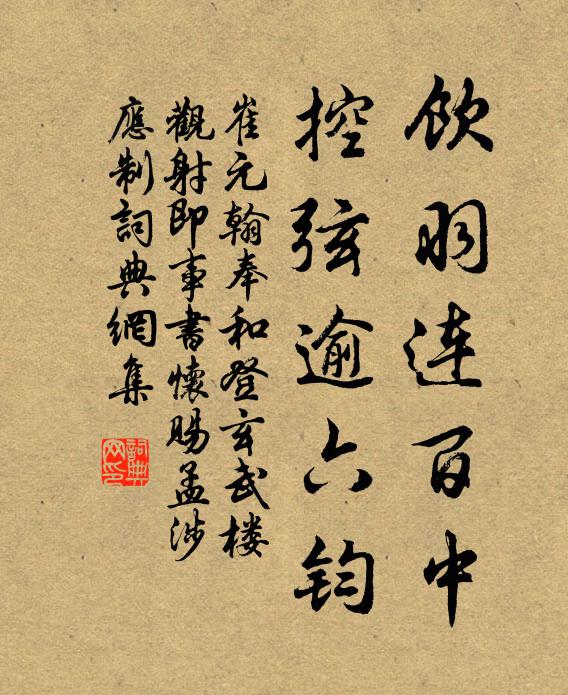 飲羽連百中
控弦逾六鈞
崔元翰奉和登玄武楼
觀射即事書懷賜孟涉
應制詞典網集
詞典
网印